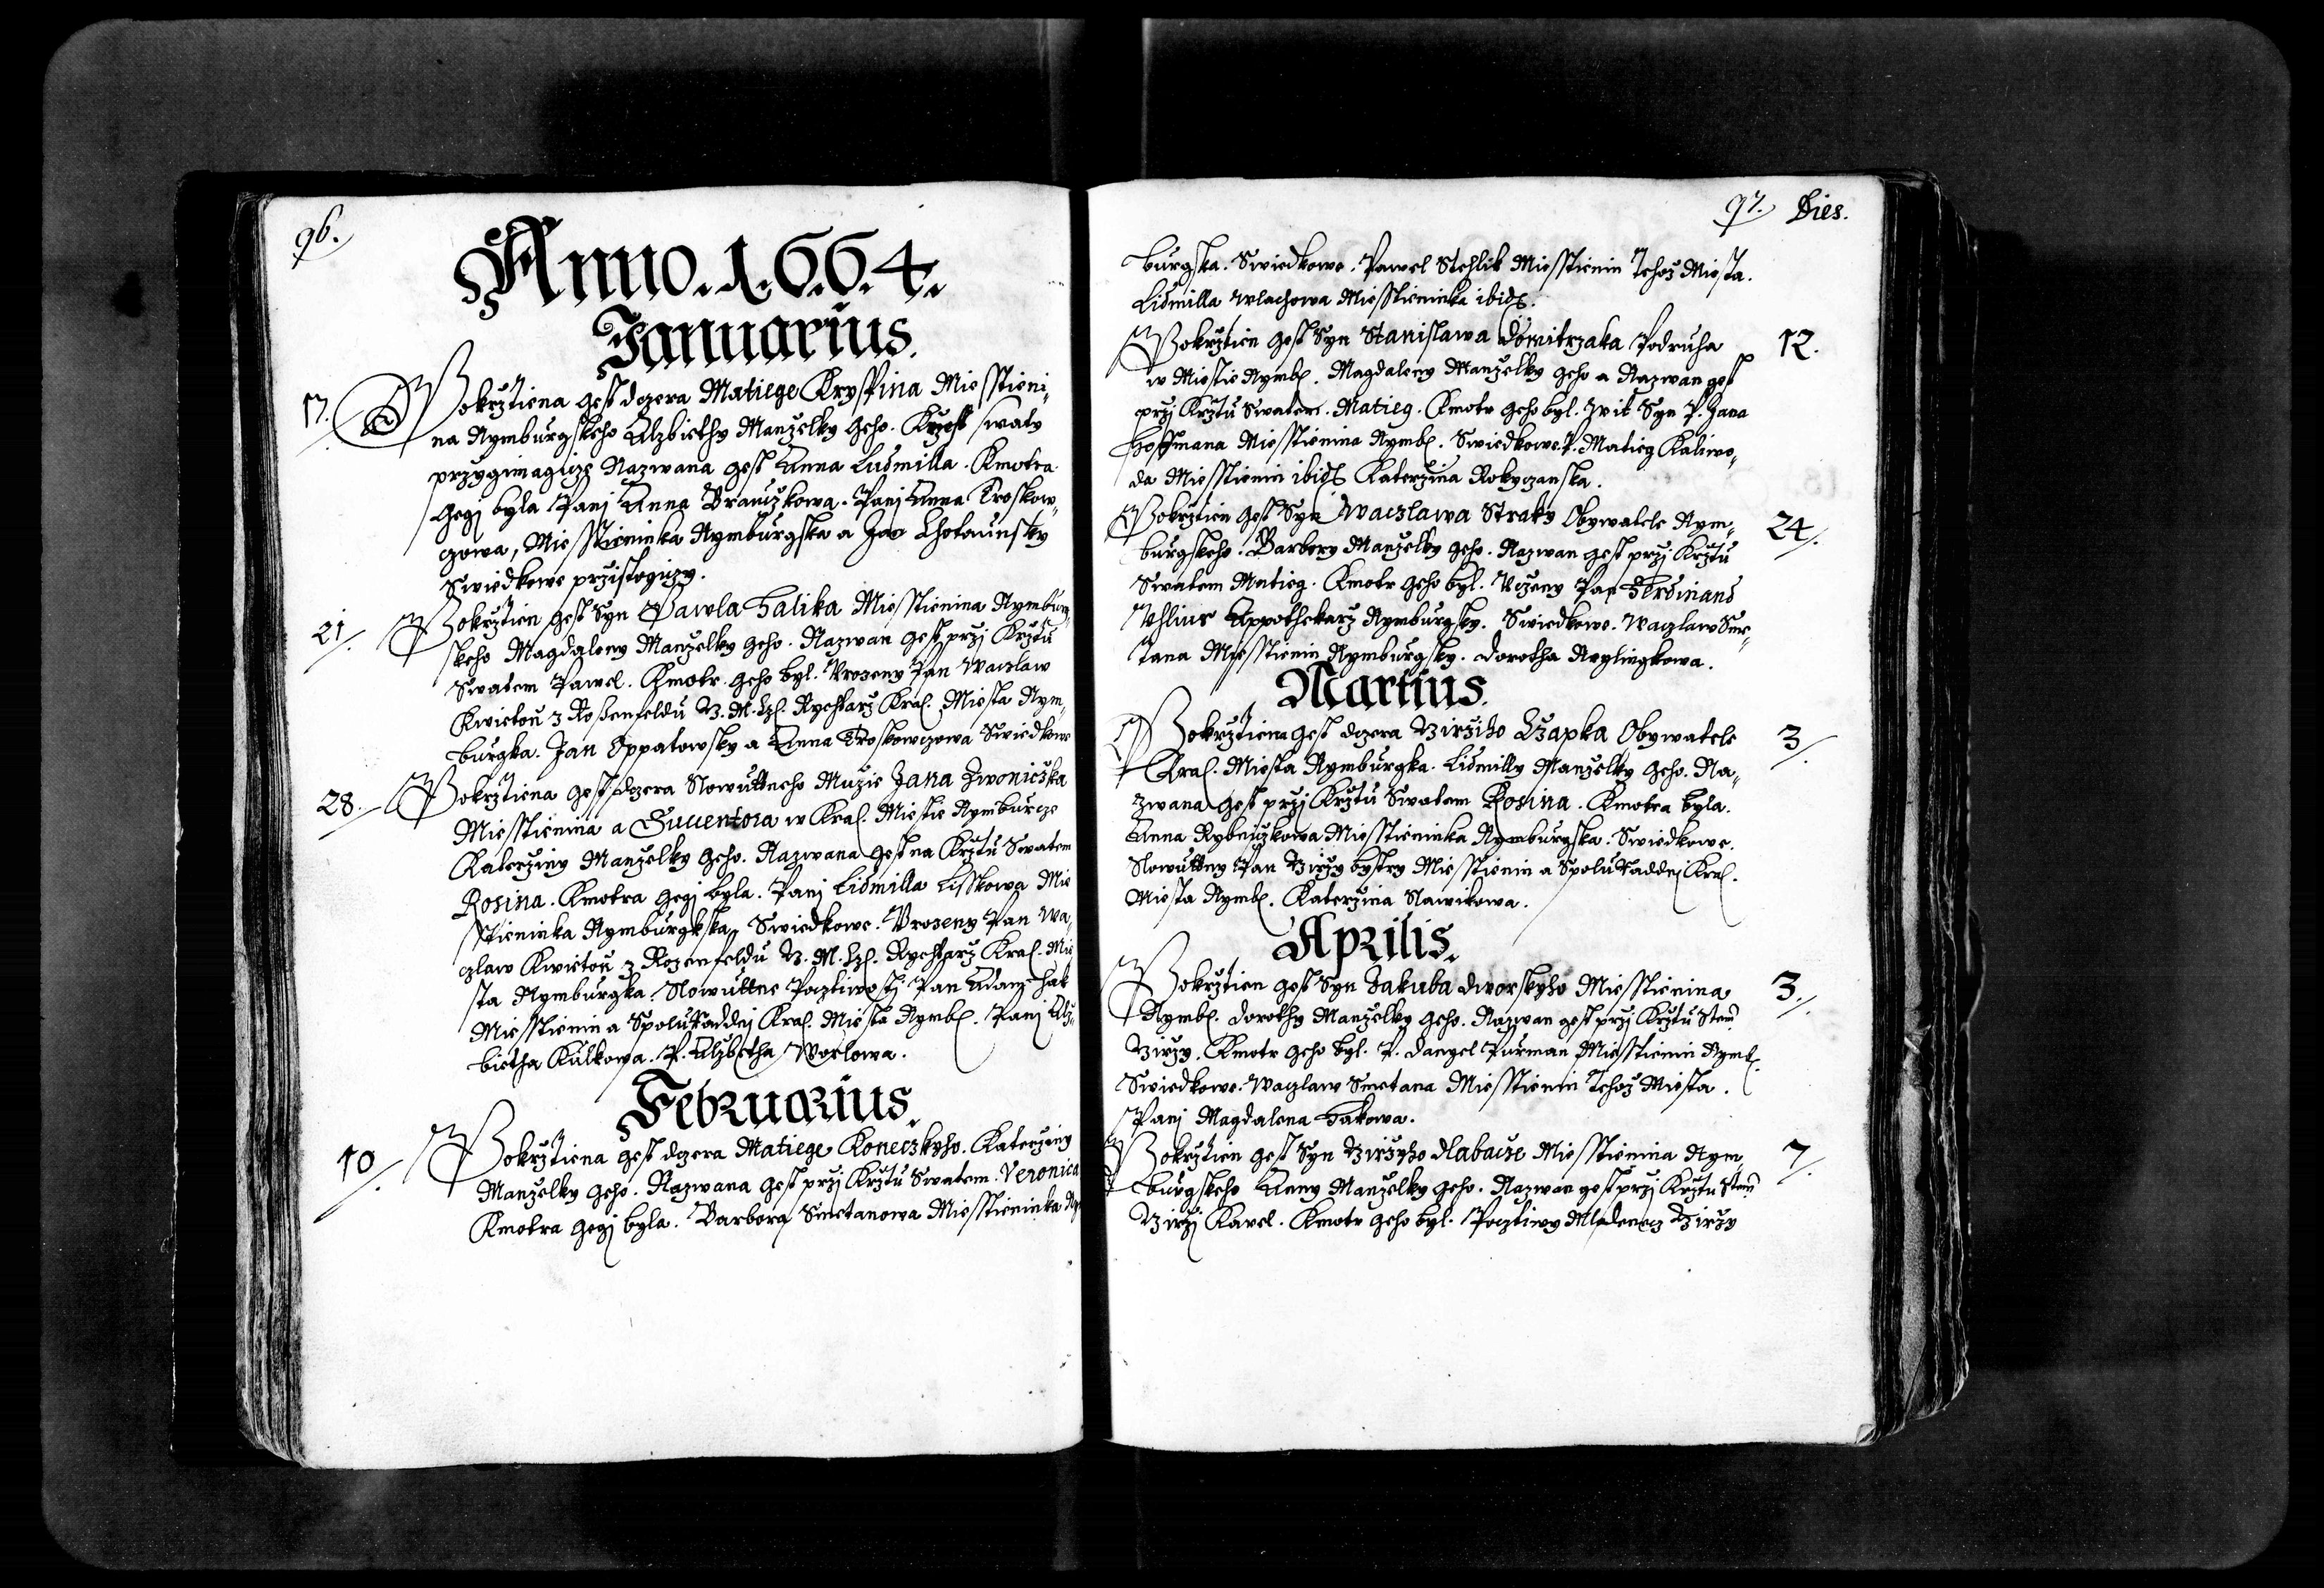 96.
Anno. 1.6.6.4.
Januarius.
17. Pokrztiena gest dczera Matiege Krysspina Miesstieni,
na Nymburgskeho Alzbiethy Manzelky geho. Krzest swaty
przygimagicze Nazwana gest Anna Ludmilla. Kmotra
gegj byla Panj Anna Branczkowa. Panj Anna Troskow,
gowa, Miesstieninka Nymburgska a Jan Lhotaunsky
Swiedkowe przistogiczy.
21. Pokrztien gest Syn Pawla Halika Miesstienina Nymbur,
skeho Magdaleny Manzelky geho. Nazwan gest przj Krztu
Swatem Pawel. Kmotr geho byl. Vrozeny Pan Waczlaw
Kwieton z Rosenfeldu J. M. Cz. Rychtarz Kral. Miesta Nym,
burgka. Jan Oppatowsky a Anna Troskowczowa Swiedkowe
28. Pokrztiena gest dczera Slowuttneho Muzie Jana Zwoniczka
Miesstienina a Succentora w Kral. Miestie Nymburcze
Katerziny Manzelky geho. Nazwana gest na Krztu Swatem
Rosina. Kmotra gegj byla. Panj Lidmilla Lisskowa Mie
sstieninka Nymburgkska, Swiedkowe. Vrozeny Pan Wa,
czlaw Kwieton z Rozenfeldu J. M. Cz. Rychtarz Kral. Mie
sta Nymburgka. Slowuttne Pocztiwosti Pan Adam Hak
Miesstienin a Spolu Raddnj Kral. Miesta Nymb. Panj Alz,
bietha Kulkowa. P. Alzbetha Worlowa.
Februarius.
10. Pokrztiena gest dczera Matiege Koneczkyho. Katerziny
Manzelky geho. Nazwana gest przj Krztu Swatem. Veronica
Kmotra gegj byla. Barbora Smetanowa Miesstieninka Nym
97. Dies.
burgska. Swiedkowe. Pawel Stehlik Miesstienin Tehoz Miesta.
Lidmilla Wlachowa Miesstieninka ibid.
Pokrztien gest Syn Stanislawa Domitrzaka Podruha 12.
w Miestie Nymb. Magdaleny Manzelky geho a Nazwan gest
przj Krztu Swatem. Matieg. Kmotr geho byl. Wit Syn P. Jana
Hoffmana Miesstienina Nymb. Swiedkowe. P. Matieg Kaliwo,
da Miesstienin ibid. Katerzina Rokyczanska.
Pokrztien gest Syn Waczlawa Straky Obywatele Nym, 24.
burgskeho. Barbory Manzelky geho. Nazwan gest przj Krztu
Swatem Matieg. Kmotr geho byl. Vczeny Pan Ferdinand
Vhlius Appothekarz Nymburgsky. Swiedkowe. Waczlaw Sme,
tana Miesstienin Nymburgsky. Dorotha Reylingkowa.
Martius.
Pokrztiena gest dczera Jirziho Czapka Obywatele 3.
Kral. Miesta Nymburgka. Lidmilly Manzelky geho. Na,
zwana gest przj Krztu Swatem Rosina. Kmotra byla.
Anna Rybniczkowa Miesstieninka Nymburgska. Swiedkowe.
Slowuttny Pan Jirzy Bystry Miesstienin a Spolu Raddnj Kral.
Miesta Nymb. Katerzina Slawikowa.
Aprilis.
Pokrztien gest Syn Jakuba Dworskyho Miesstienina 3.
Nymb. Dorothy Manzelky geho. Nazwan gest przj Krztu Stem
Jirzy. Kmotr geho byl. P. Danyel Purman Miesstienin Nymb.
Swiedkowe. Waczlaw Smetana Miesstienin Tehoz Miesta.
Panj Magdalena Hakowa.
Pokrztien gest Syn Jirzyho Dlabacze Miesstienina Nym, 7.
burgskeho Anny Manzelky geho. Nazwan gest przj Krztu Stem
Jirzj Karel. Kmotr geho byl. Pocztiwy Mladenecz Jirzy